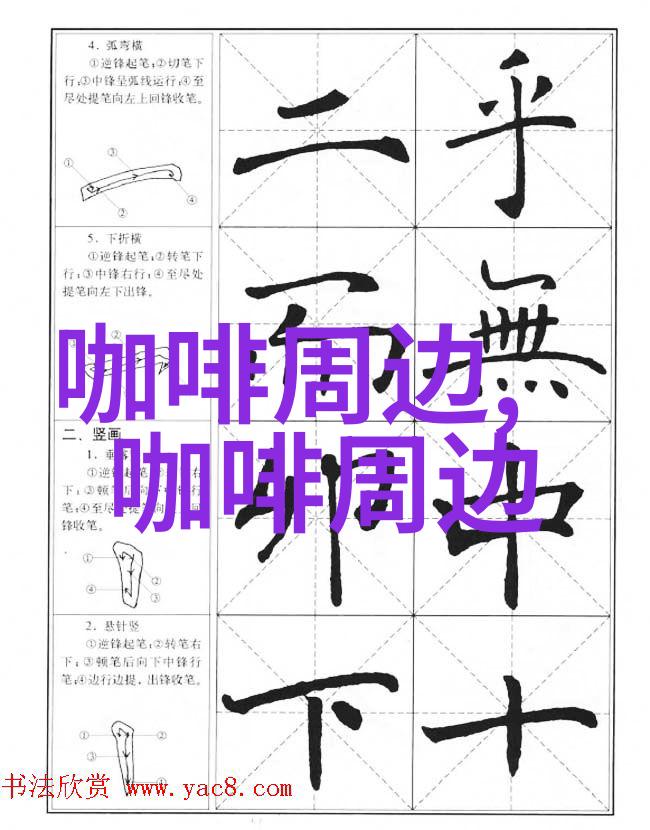 4. 弧弯横
①逆锋起笔;②切笔下
行;③中锋呈弧线运行;④至
尽处提笔向左上回锋收笔。
③
①
②
④
二
乎
5. 下折横
①逆锋起笔;②转笔下
行;③中锋右行;④至尽处
提笔向左下出锋。
②
而
無
咖啡周边,
咖啡周边
二、竖画
1.
①逆锋起笔
右
下;③顿笔后向下中锋行
笔;④至尽处提笔向
回
锋收笔。
①
②
③
④
中
2. 悬针竖
①逆锋起笔;②转笔右
下;③顿笔后向下中锋行
笔;④边行边提,出锋收笔。
①
②
③
④
下
十
书法欣赏 www.yac8.com